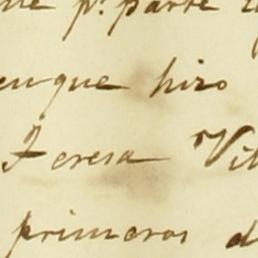 ue pr. parte
enque hizo
Teresa Vil
primeros d